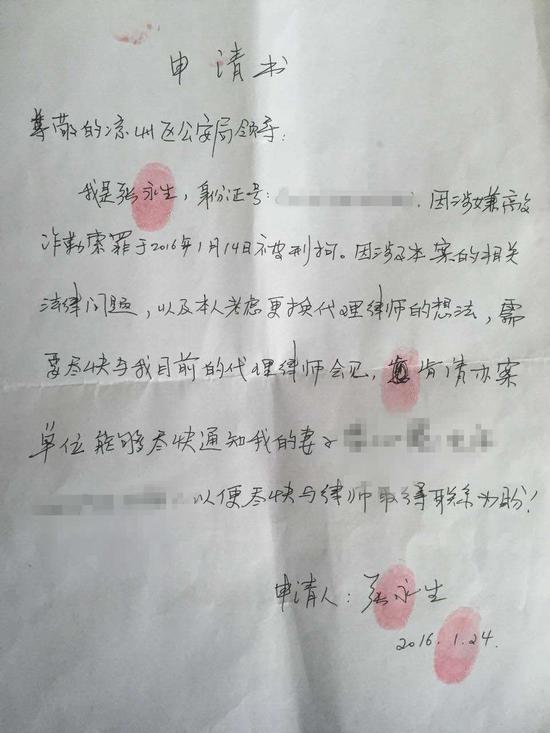 申请书
尊敬的凉州区公安局领导：
我是张永生，身份证号：，因涉嫌敲
诈勒索罪于2016年1月14日被刑拘。因涉及本案的相关
法律问题，以及本人考虑更换代理律师的想法，需
要尽快与我目前的代理律师会见，肯请办案
单位能够尽快通知我的妻子
以便尽快与律师取得联系为盼！
申请人：张永生
2016.1.24.